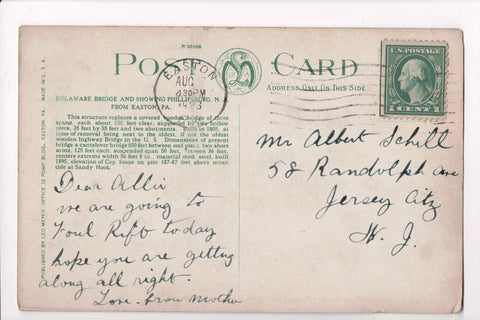 R-26566
POST CARD
ADDRESS ONLY ON THIS SIDE
U.S. POSTAGE
1 CENT 1
EASTON
AUG
430PM
DELAWARE BRIDGE AND SHOWING PHILLIPSBURG, N. J.
FROM EASTON, PA.
This structure replaces a covered wooden bridge of three
spans, each about 150 feet clear, supported by two hollow
piers, 35 feet by 55 feet and two abutments. Built in 1805, at
time of removal being next to the oldest, if not the oldest
wooden Highway Bridge in the U. S. Dimensions of present
bridge a cantelever bridge 550 feet between end piers, two shore
arms, 125 feet each, suspended span 300 feet. Trusses 36 feet,
centers extreme width 56 feet 8 in., material med. steel, built
1896, elevation of Cap Stone on pier 187-87 feet above mean
tide at Sandy Hook.
PUBLISHED BY LEO MEYER, OFFICE POMP BLDG., EASTON, PA. MADE IN U. S. A.
Dear Allie
we are going to
Foul Rift today
hope you are getting
along all right.
Love from Mother
Mr Albert Schill
58 Randolph Ave
Jersey City
N. J.